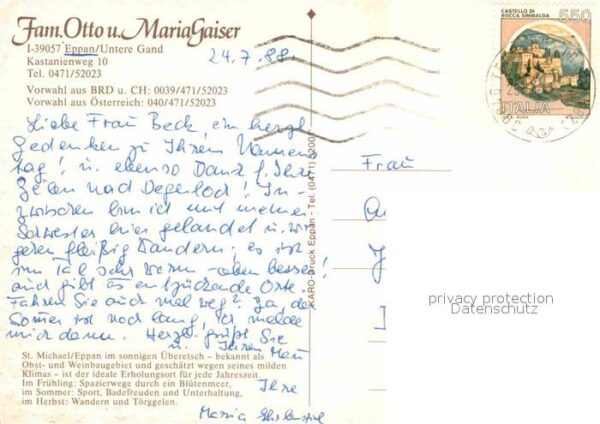 Fam. Otto u. Maria Gaiser
I-39057 Eppan/Untere Gand
Kastanienweg 10
Tel. 0471/52023
Vorwahl aus BRD u. CH: 0039/471/52023
Vorwahl aus Österreich: 040/471/52023
24.7.88
CASTELLO DI
ROCCA SINIBALDA
550
ITALIA
Liebe Frau Beck, ein herzl.
Gedenken zu Ihrem Namens
tag! u. ebenso Dank f. Ihre
Zeilen nach! In-
zwischen bin ich mit meiner
Schwester hier gelandet u. wir
gehen fleißig wandern; es ist
im Tal sehr warm - oben besser!
auch gibt es entzückende Orte.
Fahren Sie auch mal weg? Ja, der
Sommer ist noch lang, ich melde
mich dann. Herzl. grüßt Sie
u. Ihren Mann
Ihre
Maria
KARO-Druck Eppan - Tel. (0471) 5200
Frau
privacy protection
Datenschutz
St. Michael/Eppan im sonnigen Überetsch – bekannt als
Obst- und Weinbaugebiet und geschätzt wegen seines milden
Klimas – ist der ideale Erholungsort für jede Jahreszeit.
Im Frühling: Spazierwege durch ein Blütenmeer,
im Sommer: Sport, Badefreuden und Unterhaltung,
im Herbst: Wandern und Törggelen.